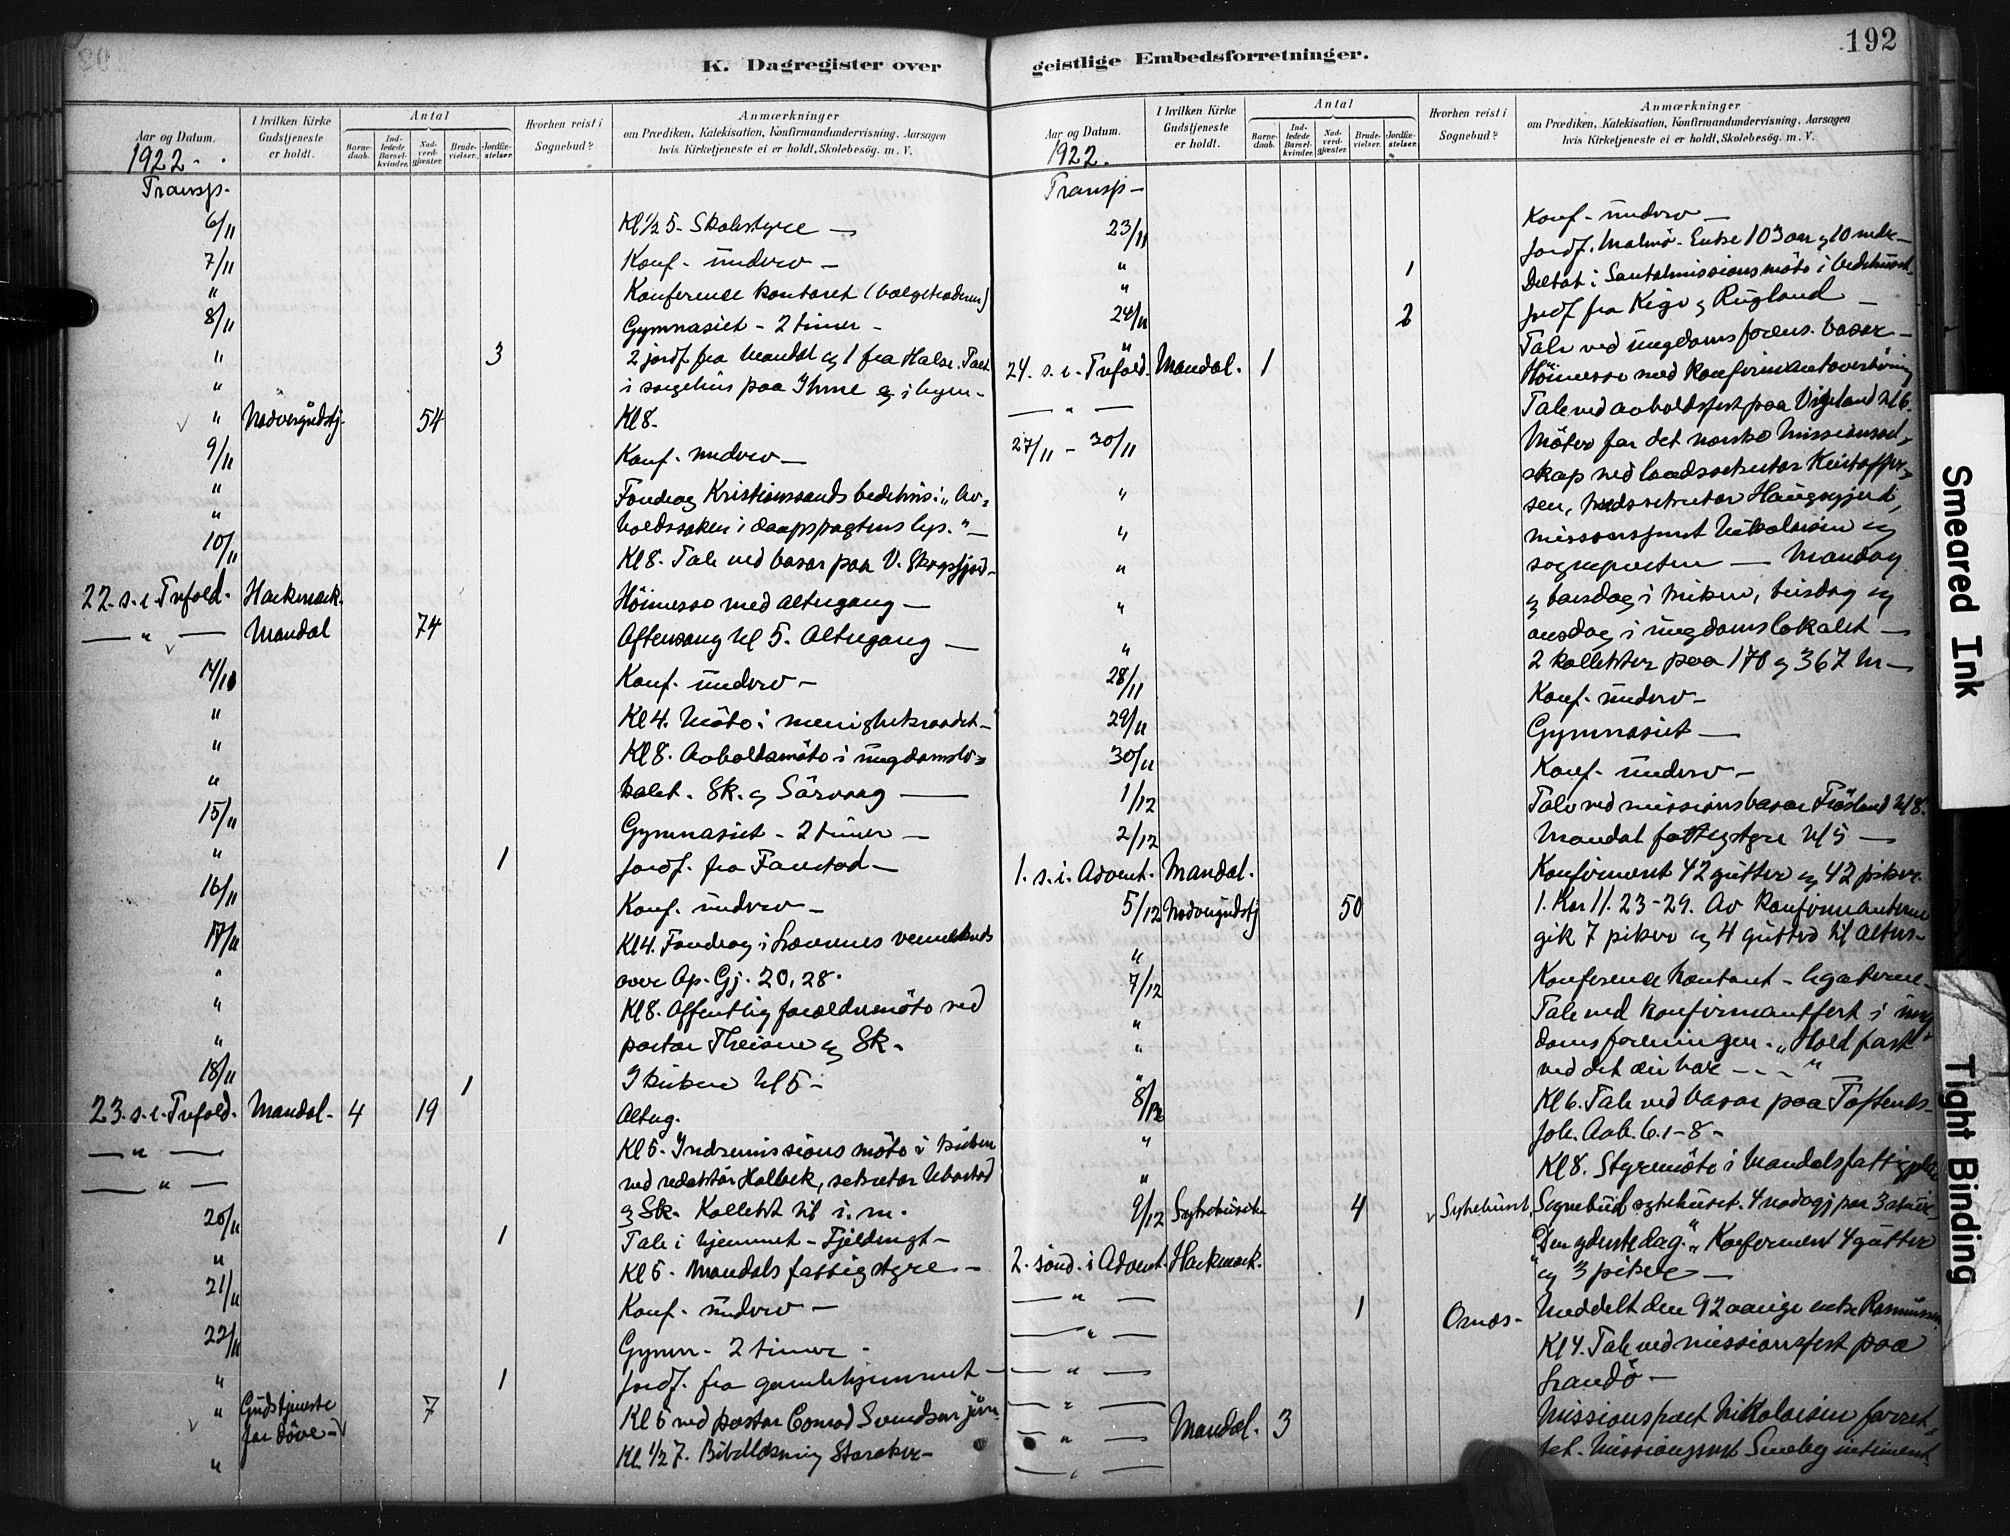 192
K. Dagregister over
geistlige Embedsforretninger.
Aar og Datum.
I hvilken Kirke Gudstjeneste er holdt.
Antal
Barne-daab.
Ind-ledede Barsel-kvinder.
Nad-verd-gjæster.
Brude-vielser.
Jordfæ-stelser.
Hvorhen reist i Sognebud?
Anmærkninger
om Prædiken, Katekisation, Konfirmandundervisning, Aarsagen
hvis Kirketjeneste ei er holdt, Skolebesøg. m. V.
1922.
Transp.
6/11 Kl ½5. Skolestyre
7/11 Konf. underv
" Konferense kontoret
8/11 Gymnasiet - 2 timer -
" 3 2 jordf. fra Mandal og 1 fra Halse.
" i sørgehus paa Ihme og i
" Nadvergudstj. 54 Kl 8.
9/11 Konf. underv
" Foredrag Kristianssands bedehus: "Av-
" holdssaken i daapspagtens lys."
10/11 Kl 8. Tale ved basar paa V. Skogsfjord
22. s. e. Trefold. Harkmark. Høimesse med altergang
— " — Mandal 74 Aftensang kl 5. Altergang
14/11 Konf. underv
" Kl 4. Møte i menighetsraadet
" Kl 8. Avholdsmøte i ungdomslo-
" kalet. Sk. og Sårvaag
15/11 Gymnasiet - 2 timer
" 1 Jordf. fra
16/11 Konf. underv
17/11 Kl 4. Foredrag i
" over Ap. Gj. 20, 28.
" Kl 8. Offentlig forældremøte ved
" pastor Theisne og Sk.
18/11 1 I kirken kl 5
23. s. e. Trefold. Mandal. 4 19 Alterg.
— " — Kl 5. Indremissionsmøte i kirken
— " — ved redaktør Holbæk, sekretær
20/11 og Sk. Kollekt til i. m.
" 1 Tale i hjemmet
" Kl 5. Mandals fattigstyre
21/11 Konf. underv
22/11 Gymn. 2 timer
" 1 Jordf. fra gamlehjemmet
" Gudstjeneste for døve 7 Kl 5 ved pastor Conrad Svendsen
" Kl ½7. Bibellæsning
Aar og Datum.
I hvilken Kirke Gudstjeneste er holdt.
Antal
Barne-daab.
Ind-ledede Barsel-kvinder.
Nad-verd-gjæster.
Brude-vielser.
Jordfæ-stelser.
Hvorhen reist i Sognebud?
Anmærkninger
om Prædiken, Katekisation, Konfirmandundervisning, Aarsagen
hvis Kirketjeneste ei er holdt, Skolebesøg. m. V.
1922.
Transp
23/11 Konf. underv
" 1 Jordf. Malmø. Enke 103 aar og 10 mdr
" Deltat i Santalmissionsmøte i bedehuset
24/11 2 Jordf fra Kige og Rugland
" Tale ved ungdomsforens. basar
24. s. e. Trefold. Mandal. 1 Høimesse med konfirmantoverhøring
— " — Tale ved avholdsfest paa Vigeland kl 6.
27/11 - 30/11 Møter for det norske Missionssel-
skap ved landssekretær Kristoffer-
" sen, kredssekretær
" missionsprest Nikolaisen og
" sognepresten — Mandag
" og torsdag i kirken, tirsdag og
" onsdag i ungdomslokalet
2 kollekter paa 170 og 367 kr
28/11 Konf. underv
29/11 Gymnasiet
30/11 Konf. underv
1/12 Tale ved missionsbasar Frøsland kl 8.
2/12 Mandal fattigstyre kl 5
1. s. i. Advent. Mandal. Konfirmert 42 gutter og 42 piker.
5/12 Nadvergudstj 50 1. Kor 11. 23-29. Av konfirmanterne
gik 7 piker og 4 gutter til alters
" Konferense kontoret - legaterne
7/12 Tale ved konfirmantfest i ung
" domsforeningen. "Hold fast
" ved det du har - - - "
8/12 Kl 6. Tale ved basar paa Toftenes
Joh. Aab. 6. 1-8
" Kl 8. Styremøte i Mandals
9/12 Sykehuset 4 Sykehuset Sognebud sykehuset. 4 nadvgj paa 3 stuer
2. sønd. i Advent. Harkmark. "Den yderste dag". Konfirmert 4 gutter
— " — og 3 piker
— " — 1 Ornes. Meddelt den 92 aarige enke Rasmussen
— " — Kl 4. Tale ved missionsfest paa
— " —
— " — Mandal. 3 Missionsprest Nikolaisen forret
— " — tet. Missionsprest
Smeared Ink
Tight Binding